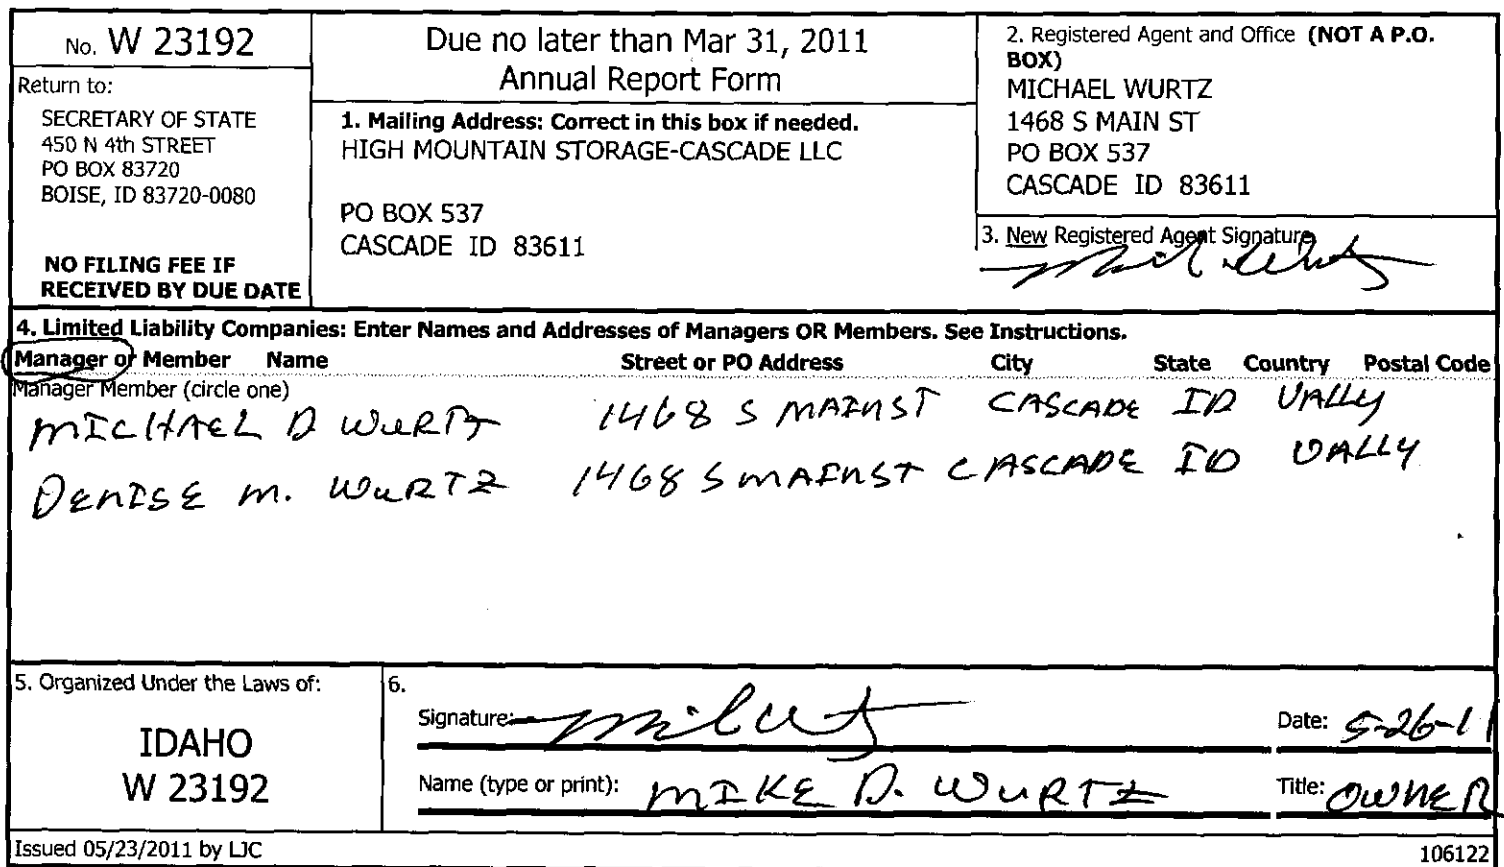 No. W 23192
Return to:
SECRETARY OF STATE
450 N 4th STREET
PO BOX 83720
BOISE, ID 83720-0080
NO FILING FEE IF
RECEIVED BY DUE DATE
Due no later than Mar 31, 2011
Annual Report Form
1. Mailing Address: Correct in this box if needed.
HIGH MOUNTAIN STORAGE-CASCADE LLC
PO BOX 537
CASCADE ID 83611
2. Registered Agent and Office (NOT A P.O.
BOX)
MICHAEL WURTZ
1468 S MAIN ST
PO BOX 537
CASCADE ID 83611
3. New Registered Agent Signature
4. Limited Liability Companies: Enter Names and Addresses of Managers OR Members. See Instructions.
Manager or Member Name Street or PO Address City State Country Postal Code
Manager Member (circle one)
MICHAEL D WURTZ 1468 S MAIN ST CASCADE ID VALLY
DENISE M. WURTZ 1468 S MAIN ST CASCADE ID VALLY
5. Organized Under the Laws of:
IDAHO
W 23192
6.
Signature:
Date: 5-26-11
Name (type or print): MIKE D. WURTZ
Title: OWNER
Issued 05/23/2011 by LJC
106122